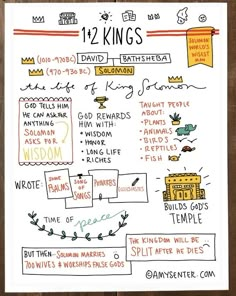 1+2 KINGS
SOLOMON
WORLD'S
WISEST
MAN
(1010-970BC) DAVID BATHSHEBA
(970-930 BC) SOLOMON
the life of King Solomon
GOD TELLS HIM
HE CAN ASK FOR
ANYTHING
SOLOMON
ASKS FOR
WISDOM
GOD REWARDS
HIM WITH:
• WISDOM
• HONOR
• LONG LIFE
• RICHES
TAUGHT PEOPLE
ABOUT:
• PLANTS
• ANIMALS
• BIRDS
• REPTILES
• FISH
WROTE:
SOME
PSALMS
SONG OF
SONGS
PROVERBS
ECCLESIASTES
BUILDS GOD'S
TEMPLE
TIME OF peace
BUT THEN... SOLOMON MARRIES
700 WIVES & WORSHIPS FALSE GODS
THE KINGDOM WILL BE
SPLIT AFTER HE DIES
©AMYSENTER.COM